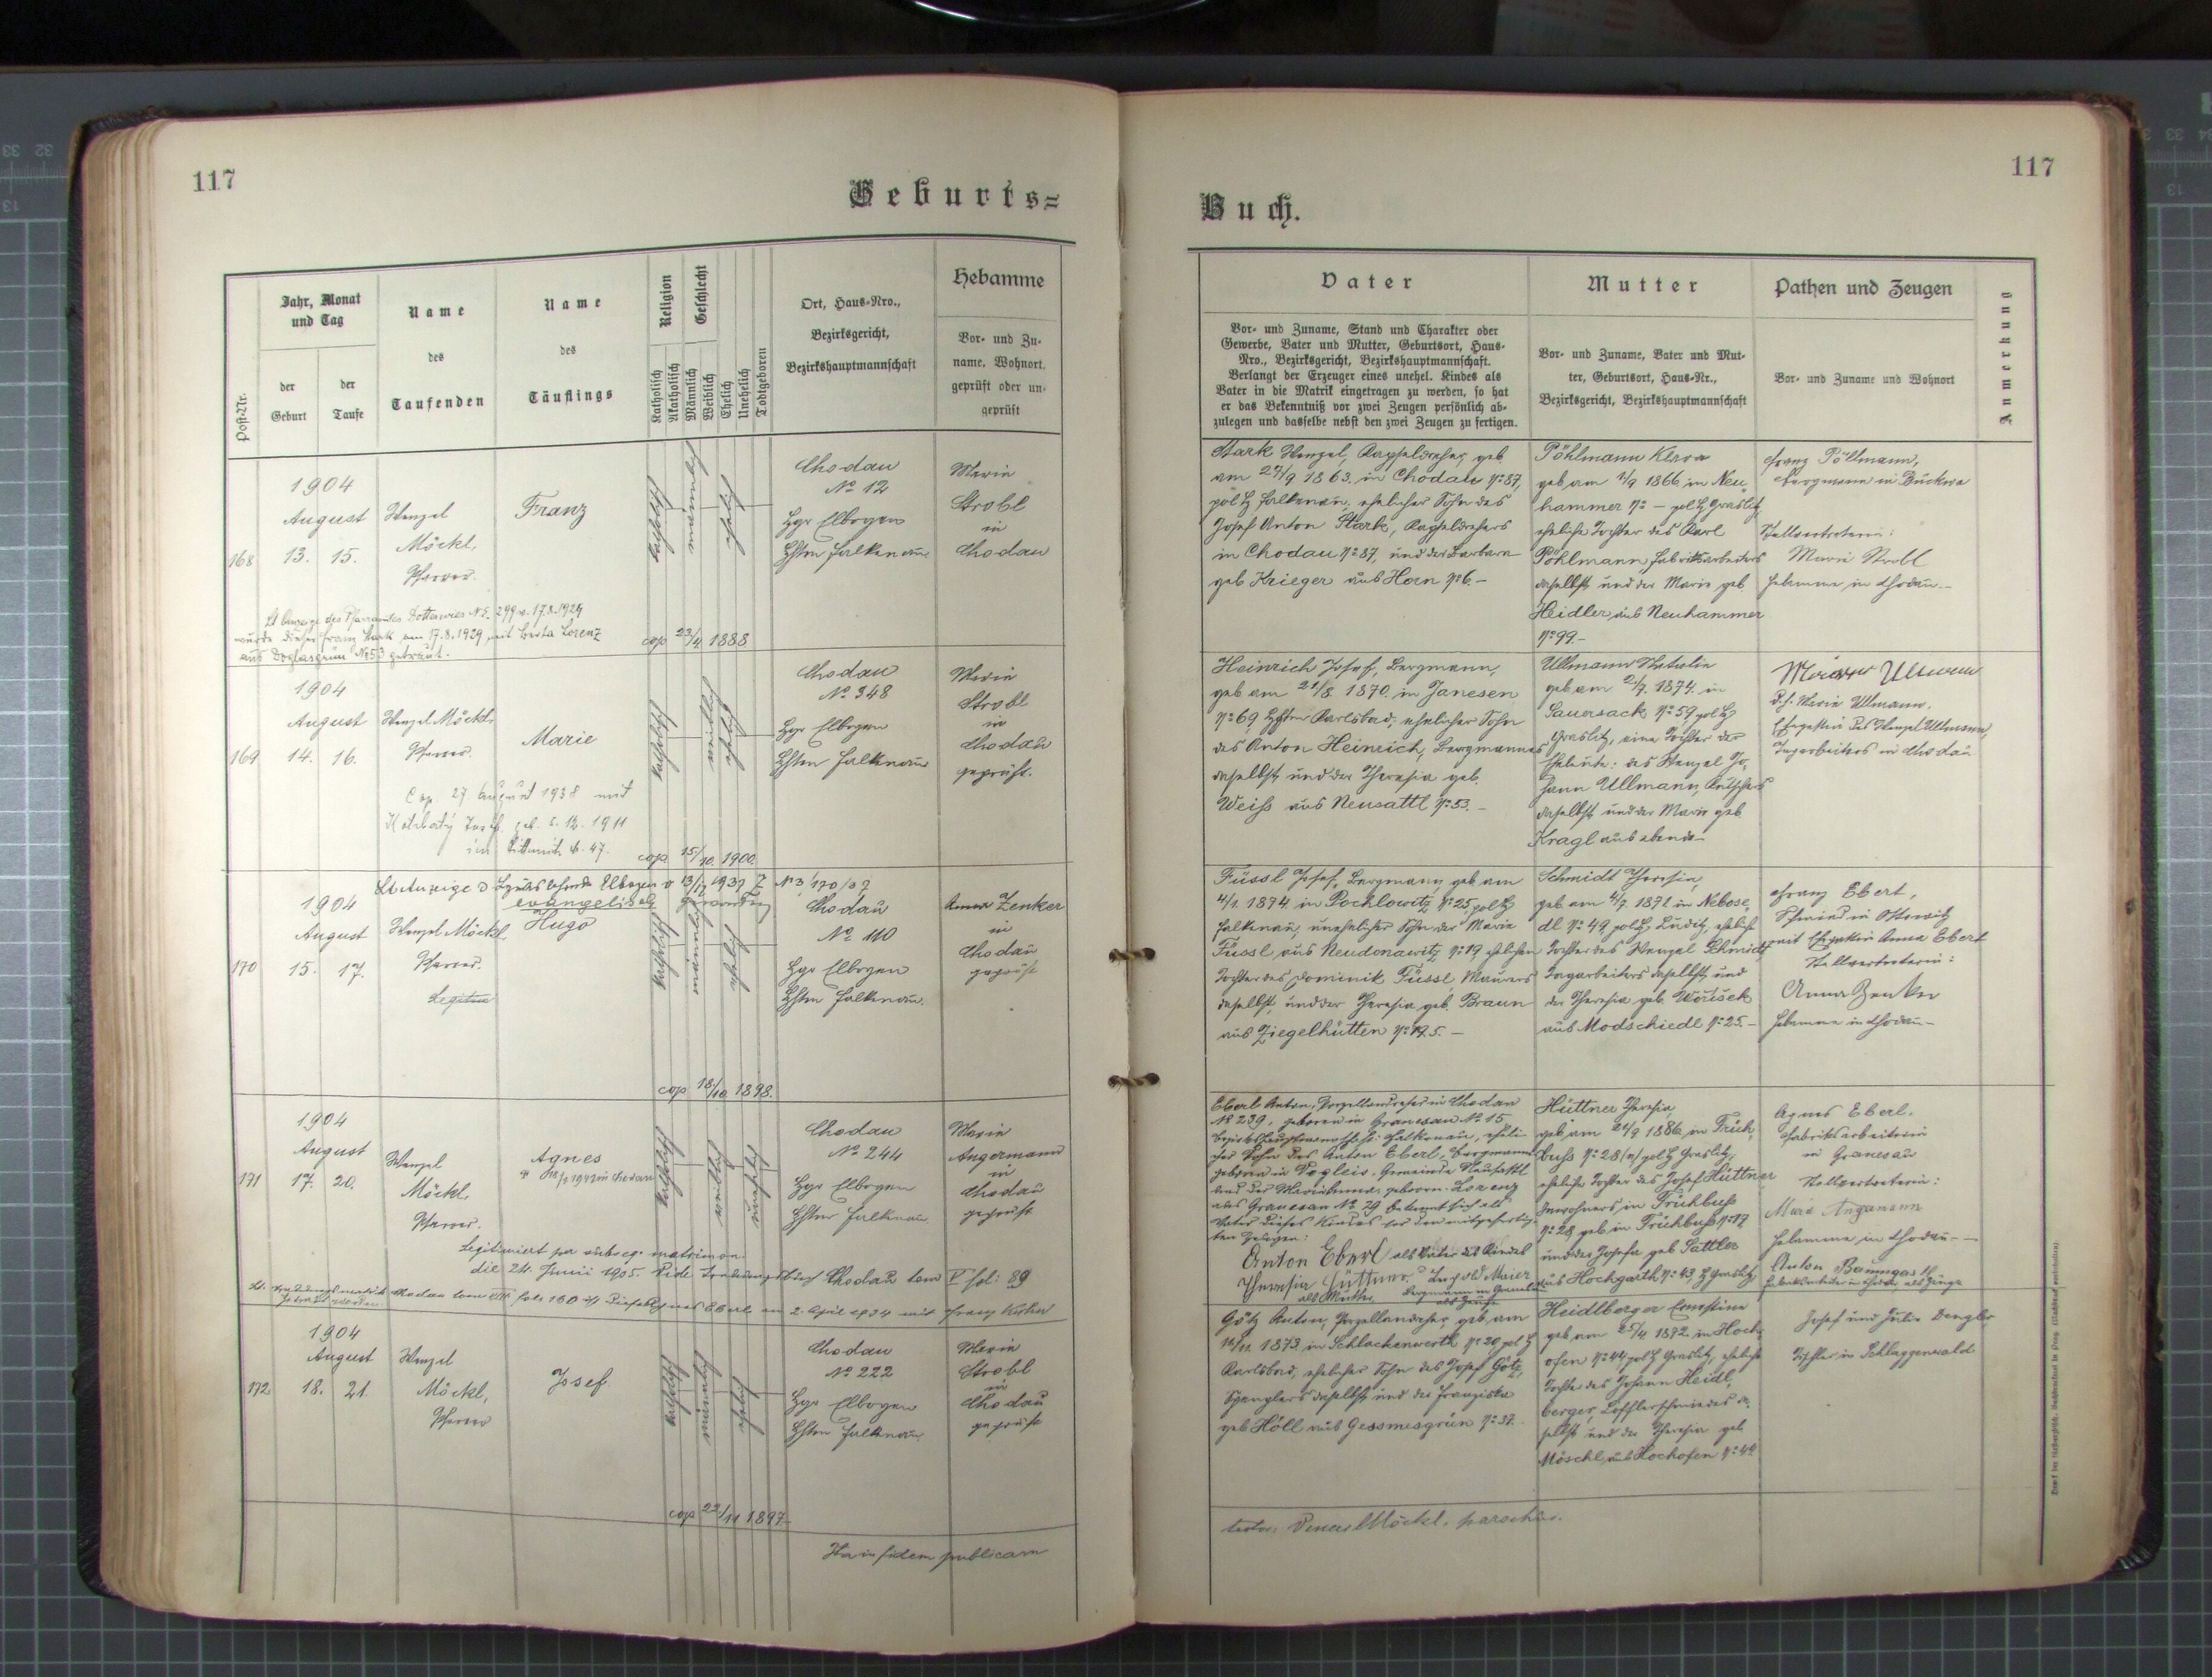 117
Geburts=
Post-Nr.
Jahr, Monat
und Tag
der
Geburt
der
Taufe
Name
des
Taufenden
Name
des
Täuflings
Religion
Katholisch
Akatholisch
Geschlecht
Männlich
Weiblich
Ehelich
Unehelich
Todtgeboren
Ort, Haus-Nro.,
Bezirksgericht,
Bezirkshauptmannschaft
Hebamme
Vor- und Zu-
name, Wohnort.
geprüft oder un-
geprüft
168
1904
August
13. 15.
Wenzel
Möckl,
Pfarrer.
Franz
katholisch
männlich
ehelich
Chodau
No 12
Bgr Elbogen
Bhtm Falkenau
Marie
Strobl
in
Chodau
Lt Anzeige des Pfarramtes Dottawies NE. 299 v. 17.8.1929
wurde dieser Franz Stark am 17.8.1929 mit Berta Lorenz
aus Doglasgrün No 53 getraut.
cop 23/4 1888
169
1904
August
14. 16.
Wenzel Möckl,
Pfarrer.
Marie
katholisch
weiblich
ehelich
Chodau
No 348
Bgr Elbogen
Bhtm Falkenau
Marie
Strobl
in
Chodau
geprüft.
Cop. 27. August 1938 mit
Josef, geb. 5. 12. 1911
in 47.
cop 15/10. 1900.
Lt Anzeige d Elbogen v 13/12 1937 Z No 3/170/37
evangelisch geworden
170
1904
August
15. 17.
Wenzel Möckl
Pfarrer.
Legitim
Hugo
katholisch
männlich
ehelich
Chodau
No 110
Bgr Elbogen
Bhtm Falkenau.
Anna Zenker
in
Chodau
geprüft
cop 18/10. 1898.
171
1904
August
17. 20.
Wenzel
Möckl,
Pfarrer.
Agnes
1942 in Chodau
katholisch
weiblich
unehelich
Chodau
No 244
Bgr Elbogen
Bhtm Falkenau.
Marie
Angermann
in
Chodau
geprüft
Legitimiert per subseq. matrimon.
die 24. Junii 1905. Vide Trauungsbuch Chodau tom V fol: 89
Lt. Trauungsmatrik Chodau tom VIII fol. 160 ist diese Agnes Eberl am 2. April 1934 mit Franz
getraut worden.
172
1904
August
18. 21.
Wenzel
Möckl,
Pfarrer
Josef
katholisch
männlich
ehelich
Chodau
No 222
Bgr Elbogen
Bhtm Falkenau
Marie
Strobl
in
Chodau
geprüft
cop 22/11 1897
Ita in fidem publicam
117
Buch.
Vater
Vor- und Zuname, Stand und Charakter oder
Gewerbe, Vater und Mutter, Geburtsort, Haus-
Nro., Bezirksgericht, Bezirkshauptmannschaft.
Verlangt der Erzeuger eines unehel. Kindes als
Vater in die Matrik eingetragen zu werden, so hat
er das Bekenntniß vor zwei Zeugen persönlich ab-
zulegen und dasselbe nebst den zwei Zeugen zu fertigen.
Mutter
Vor- und Zuname, Vater und Mut-
ter, Geburtsort, Haus-Nr.,
Bezirksgericht, Bezirkshauptmannschaft
Pathen und Zeugen
Vor- und Zuname und Wohnort
Anmerkung
Stark Wenzel, Kapseldreher, geb.
am 27/9 1863, in Chodau No 87,
pol Bz Falkenau, ehelicher Sohn des
Josef Anton Stark, Kapseldrehers
in Chodau No 87, und der Barbara
geb Krieger aus Horn No 6.-
Pöhlmann Klara
geb am 1/9 1866 in Neu
hammer No - pol Bz Graslitz,
eheliche Tochter des Karl
Pöhlmann Fabriksarbeiters
daselbst und der Marie geb
Heidler aus Neuhammer
No 99.-
Franz Pöllmann,
Bergmann in Buckwa
Stellvertreterin:
Marie Strobl
Hebamme in Chodau.-
Heinrich Josef, Bergmann,
geb am 21/8. 1870. in Janesen
No 69, Bhtm Karlsbad, ehelicher Sohn
des Anton Heinrich, Bergmannes
daselbst und der Theresia geb.
Weiss aus Neusattl No 53.-
Ullmann
geb am 2/7. 1874. in
Sauersack No 59 pol Bz
Graslitz, eine Tochter der
Eheleute: des Wenzel Jo,
hann Ullmann, Kutschers
daselbst und der Marie geb
Kragl aus ebenda-
Marie Ullmann
d. h. Marie Ullmann.
Ehegattin des Wenzel Ullmann,
Tagarbeiters in Chodau
Füssl Josef, Bergmann geb am
4/1. 1874 in Pochlowitz No 25, pol Bz
Falkenau, unehelicher Sohn der Marie
Füssl aus Neudonawitz No 19 ehelichen
Tochter des Dominik Füssl, Maurers
daselbst, und der Theresia geb. Braun
aus Ziegelhütten No 195.-
Schmidt Theresia,
geb am 4/7 1871 in Nebose,
dl No 49 pol Bz, Luditz, eheliche
Tochter des Wenzel Schmidt
Tagarbeiters daselbst und
der Theresia geb. Worischek
aus Modschiedl No 25.-
Franz Ebert,
Schmied in Ottowitz
mit Ehegattin Anna Ebert
Stellvertreterin:
Anna Zenker
Hebamme in Chodau-
Eberl Anton, Porzellandreher in Chodau
No 239, geboren in Granesau No 15
Bezirkshauptmannschaft: Falkenau, eheli-
cher Sohn des Anton Eberl, Bergmanns
geboren in Pogleis, Gemeinde Neusattl
und der Maria Anna, geboren. Lorenz
aus Granesau No 29 bekennt sich als
Vater dieses Kindes vor den mitgefertig-
ten Zeugen:
Anton Eberl als Vater des Kindes
Theresia Hüttner als Mutter.
Leopold Maier
Bergmann in Granesau
als Zeuge
Hüttner Theresia,
geb am 24/9 1886, in Früh,
buss No 28/n/ pol Bz Graslitz,
eheliche Tochter des Josef Hüttner
Inwohners in Frühbuss
No 28, geb in Frühbuss No 17
und der Josefa geb Sattler
aus Hochgarth No 43, Bz Graslitz
Agnes Eberl.
Fabriksarbeiterin
in Granesau
Stellvertreterin:
Marie Angermann
Hebamme in Chodau--
Anton Baumgartl
Fabriksarbeiter in Chodau, als Zeuge
Götz Anton, Porzellandreher, geb am
12/11. 1873. in Schlackenwerth No 20, pol Bz
Karlsbad, ehelicher Sohn des Josef Götz,
Spenglers daselbst und der Franziska
geb Höll aus Gessmesgrün No 37.
Heidlberger Ernestine
geb am 25/4 1872. in Hoch,
ofen No 44, pol Bz Graslitz, eheliche
Tochter des Johann Heidl,
berger, Löfflerschmiedes da,
selbst und der Theresia geb
Möschl, aus Hochofen No 44
Josef und Julie Dengler
Tischler in Schlaggenwald
testor: Venceslaus Möckl, parochus.